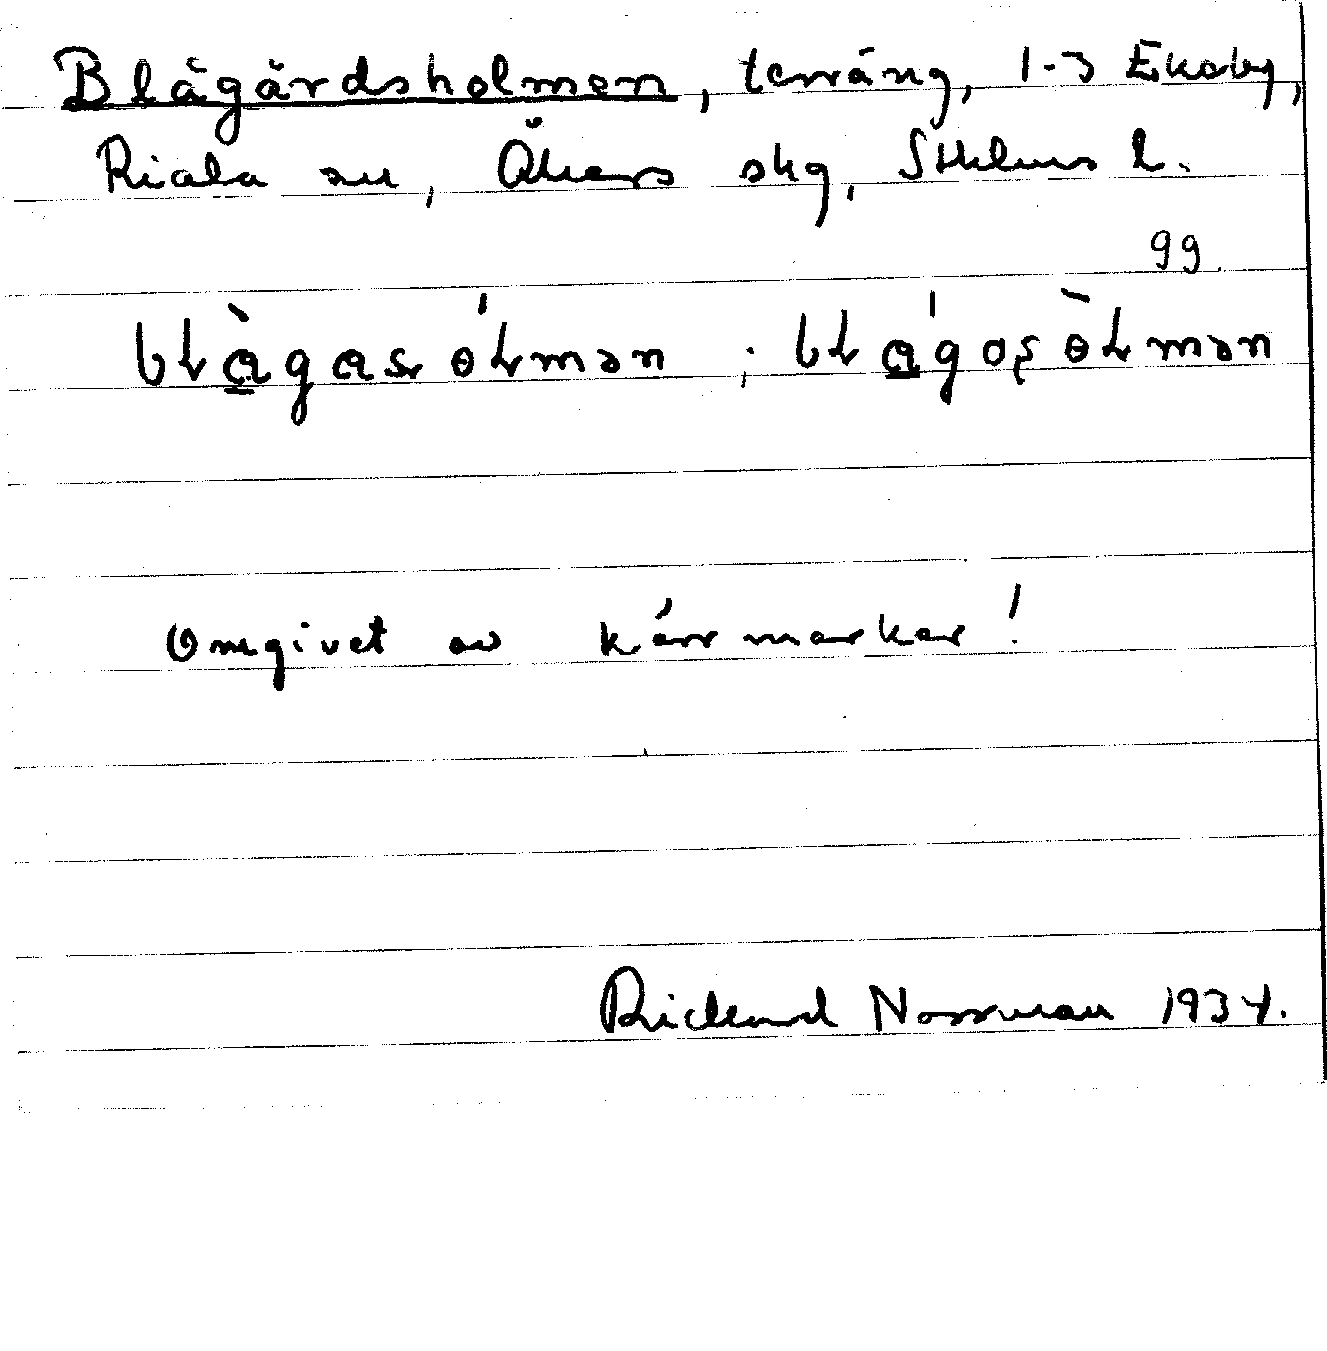 Blågårdsholmen, terräng, 1-3 Ekeby,
Riala sn, Åkers skg, Sthlms l.
99.
blågas ólmən ; blágos òlmən
Omgivet av kärrmarker!
Rickard Norrman 1934.